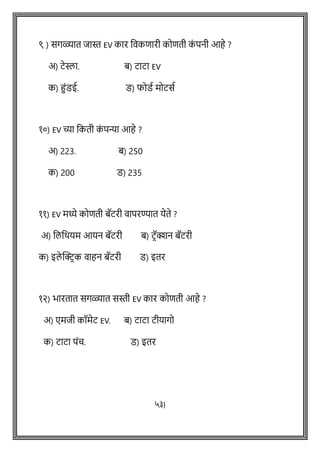 ९ ) सगळ्यात जास्त EV कार विकणारी कोणती कंपनी आहे ?
अ) टेस्ला. ब) टाटा EV
क) हुंडई. ड) फोर्ड मोटर्स
१०) EV च्या किती कंपन्या आहे ?
अ) 223. ब) 250
क) 200 ड) 235
११) EV मध्ये कोणती बॅटरी वापरण्यात येते ?
अ) लिथियम आयन बॅटरी ब) ट्रॅक्शन बॅटरी
क) इलेक्ट्रिक वाहन बॅटरी ड) इतर
१२) भारतात सगळ्यात सस्ती EV कार कोणती आहे ?
अ) एमजी कॉमेट EV. ब) टाटा टीयागो
क) टाटा पंच. ड) इतर
५३)